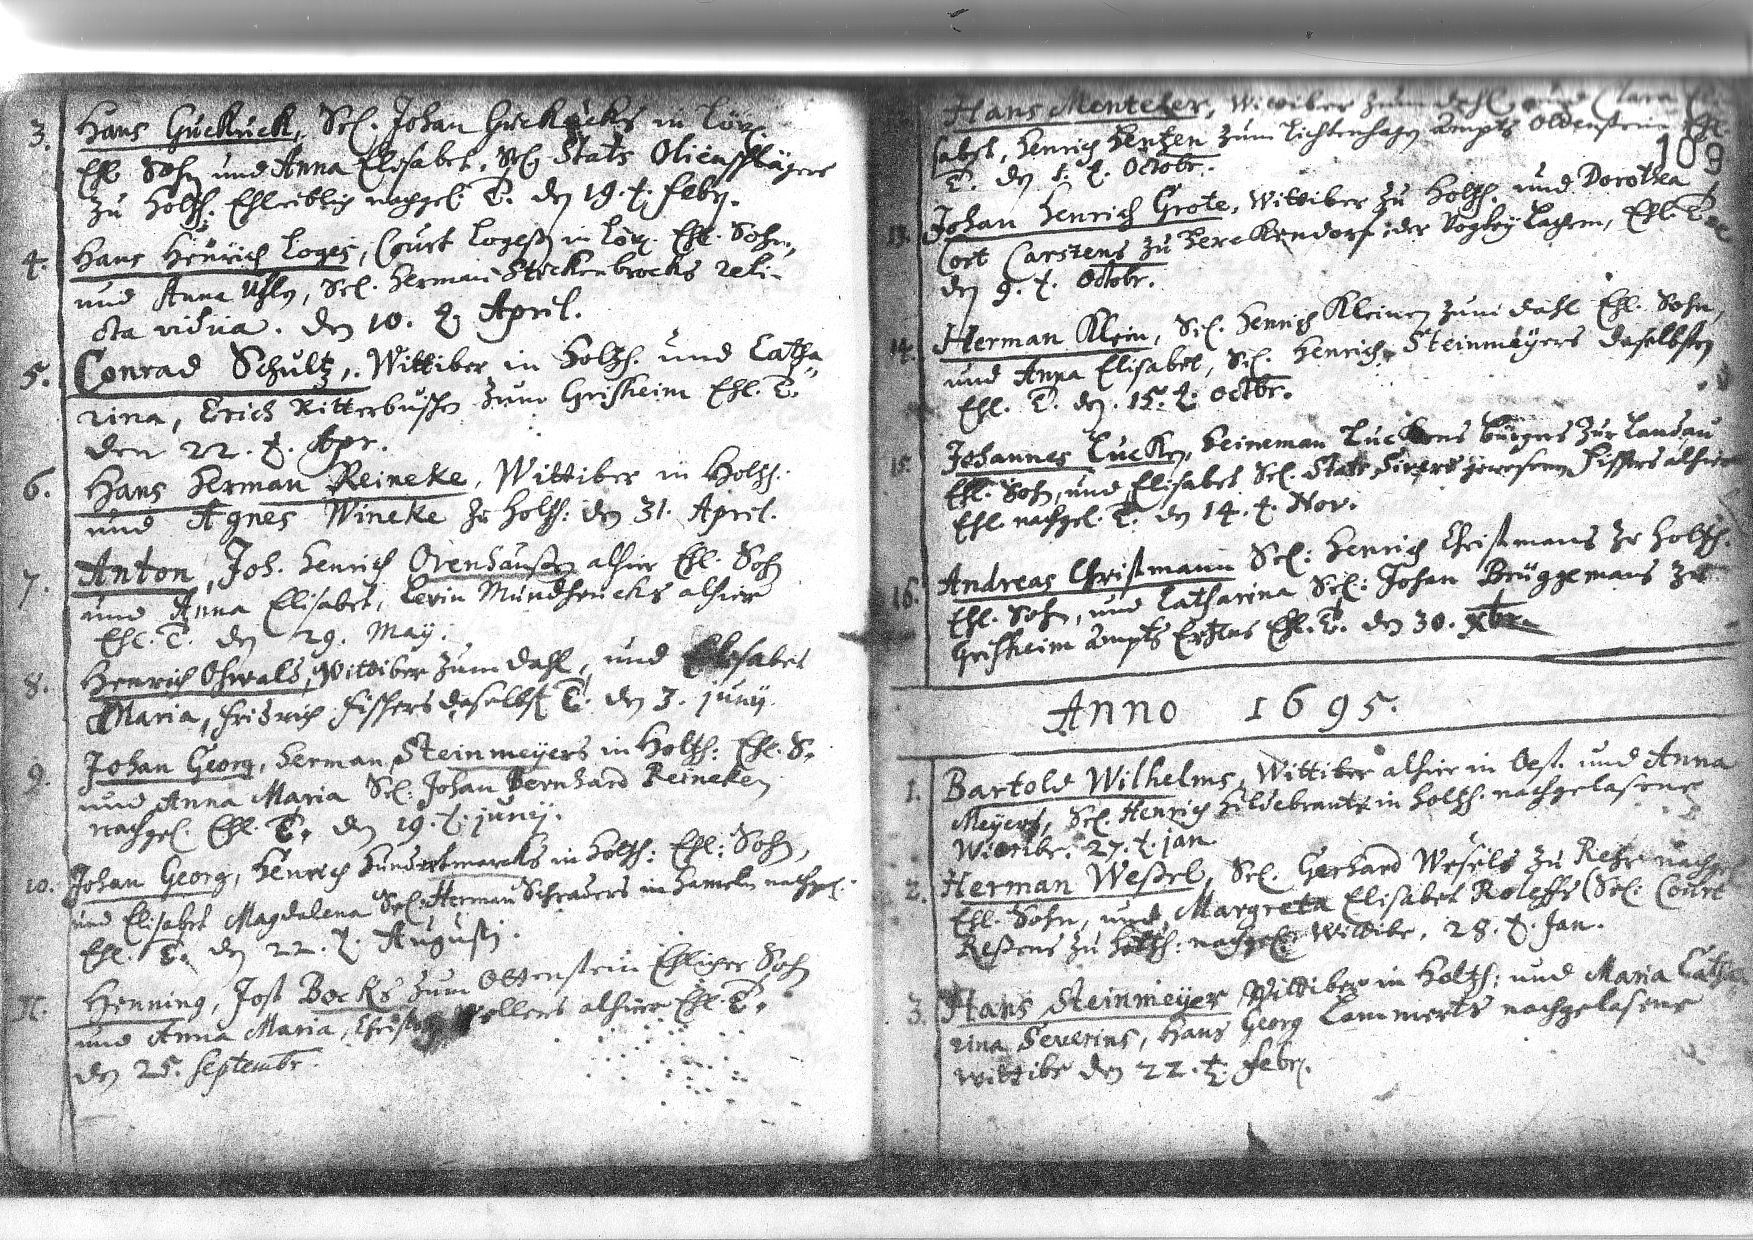 3. Hans Guckuck, Sel. Johan Guckucks in Löw.
Ehl. Sohn und Anna Elisabet, Sel. Stats Olienschlägers
zu Holtzh. Ehleiblich nachgel. T. den 19. t. febr.
4. Hans Henrich Loges, Court Logeß in Löw. Ehl. Sohn,
und Anna, Sel. Herman Stockenbrocks reli-
cta vidua. den 10. t. April.
5. Conrad Schultz, Wittiber in Holtzh. und Catha
rina, Erich Ritterbuschen zum Grisheim Ehl. T.
den 22. t. Apr.
6. Hans Herman Reineke, Wittiber in Holtzh.
und Agnes Wineke zu Holtzh: den 31. April.
7. Anton, Joh. Henrich Ovenhausen alhier Ehl. Sohn
und Anna Elisabet, Levin Mundhencks alhier
Ehl. T. den 29. May.
8. Henrich Ohwals, Wittiber zum Dahl, und Elisabet
Maria, fridrich fischers daselbst T. den 3. junij
9. Johan Georg, Herman Steinmeyers in Holtzh: Ehl. S.
und Anna Maria Sel: Johan Bernhard Reineken
nachgel. Ehl. T. den 19. t. junij.
10. Johan Georg, Henrich Hundertmarcks in Holtzh: Ehl: Sohn,
und Elisabet Magdalena Sel: Herman Schraders in Hameln nachgel.
Ehl. T. den 22. t. Augusti.
11. Henning, Jost Bocks zum Ottenstein Ehliger Sohn
und Anna Maria, alhier Ehl. T.
den 25. Septembr.
109
Hans Menteler, Wittiber zum Dahl und Clara Eli
sabet, Henrich Hentzen zum Lichtenhagen Ampts Oldenstein Ehl.
T. den 1. t. Octobr.
13. Johan Henrich Grote, Wittiber zu Holtzh. und Dorothea
Cort Carstens zu Herckendorf der Vogtey Lachem, Ehl. T.
den 9. t. Octobr.
14. Herman Klein, Sel. Henrich Kleinen zum Dahl Ehl. Sohn,
und Anna Elisabet, Sel. Henrich Steinmeyers daselbsten
Ehl. T. den 15. t. Octbr.
15. Johannes Lucken, Heineman Luckens bürgers zur Landau
Ehl. Sohn, und Elisabet Sel. Stats Sivers gewesenen fischers alhier
Ehl. nachgel. T. den 14. t. Nov.
16. Andreas Christmann Sel: Henrich Christmans zu Holtzh.
Ehl. Sohn, und Catharina Sel: Johan Brüggemans zu
Grisheim Ampts Ertzens Ehl. T. den 30. Xbr.
Anno 1695.
1. Bartold Wilhelms, Wittiber alhier in Oest. und Anna
Meyers, Sel. Henrich Hildebrants in Holtzh. nachgelasene
Wittibe. 27. t. jan.
2. Herman Weßel, Sel. Gerhard Wesels zu Rehr nachgel
Ehl. Sohn, und Margreta Elisabet Roleffs (Sel: Court
Reßens zu Holtzh: nachgel. Wittibe, 28. t. Jan.
3. Hans Steinmeyer Wittiber in Holtzh: und Maria Catha
rina Severins, Hans Georg Lammerts nachgelasene
Wittibe den 22. t. febr.